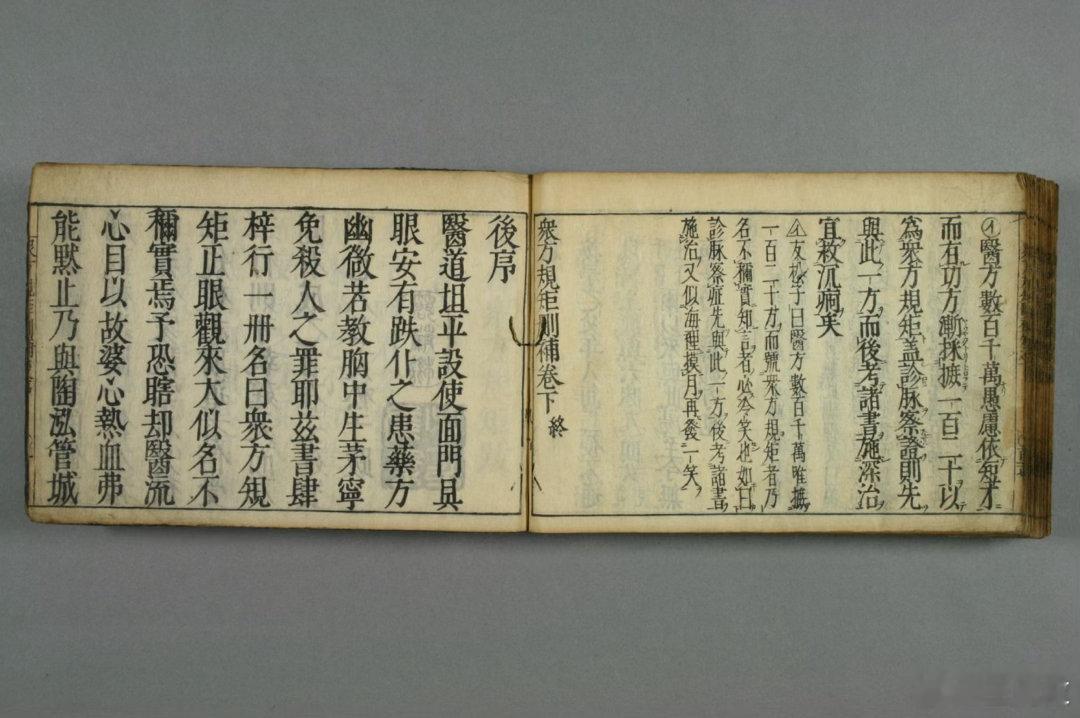 醫方數百千萬愚慮依短才
而有切方漸採摭一百二十以
爲衆方規矩盖診脉察證則先
與此一方而後考諸書施深治
宜救沉痾矣
友松子曰醫方數百千萬唯摭
一百二十方而號衆方規矩者乃
名不稱實知言者必冷笑也如曰
診脉察症先與此一方後考諸書
施治又似海裡摸月再發一笑
衆方規矩刪補卷下 終
後序
醫道坦平設使面門具
眼安有跌仆之患藥方
幽微若教胸中生茅寧
免殺人之罪耶茲書肆
梓行一冊名曰衆方規
矩正眼觀來大似名不
稱實焉予恐瞎却醫流
心目以故婆心熱血弗
能默止乃與陶泓管城